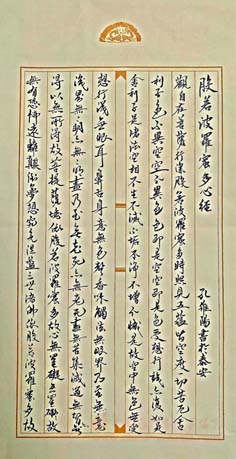 般若波羅蜜多心經
孔 陽書於泰安
觀自在菩薩行深般若波羅蜜多時照見五蘊皆空度一切苦厄舍
利子色不異空空不異色色即是空空即是色受想行識亦復如是
舍利子是諸法空相不生不滅不垢不淨不增不減是故空中無色無受
想行識無眼耳鼻舌身意無色聲香味觸法無眼界乃至無意
識界無無明亦無無明盡乃至無老死亦無老死盡無苦集滅道無智亦無
得以無所得故菩提薩埵依般若波羅蜜多故心無罣礙無罣礙故
無有恐怖遠離顛倒夢想究竟涅槃三世諸佛依般若波羅蜜多故